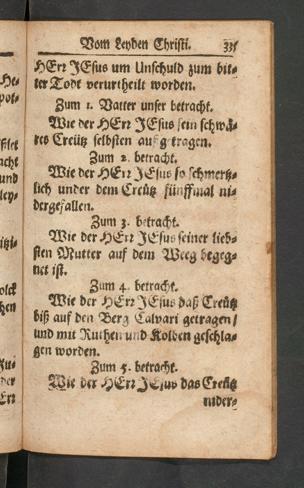 Vom Leyden Christi. 335
HErr JEsus um Unschuld zum bit-
ter Todt verurtheilt worden.
Zum 1. Vatter unser betracht.
Wie der HErr JEsus sein schwä-
res Creütz selbsten auf getragen.
Zum 2. betracht.
Wie der HErr JEsus so schmertz-
lich under dem Creütz fünffmal ni-
dergefallen.
Zum 3. betracht.
Wie der HErr JEsus seiner lieb-
sten Mutter auf dem Weeg begeg-
net ist.
Zum 4. betracht.
Wie der HErr JEsus daß Creütz
biß auf den Berg Calvari getragen/
und mit Ruthen und Kolben geschla-
gen worden.
Zum 5. betracht.
Wie der HErr JEsus das Creütz
nider-